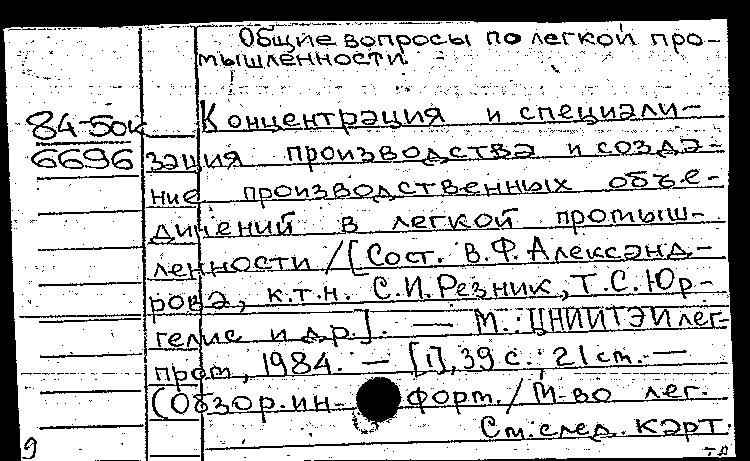 Общие вопросы по легкой про-
мышленности
84-50к Концентрация и специали-
6696 зация производства и созда-
ние производственных объе-
динений в легкой промыш-
ленности / [Сост. В.Ф. Александ-
рова, к.т.н. С.И. Резник, Т.С. Юр-
гелис и др.]. — М.: ЦНИИТЭИлег-
пром, 1984. — [1], 39 с.; 21 см. —
(Обзор. ин- форм. / М-во лег.
См. след. карт.
9